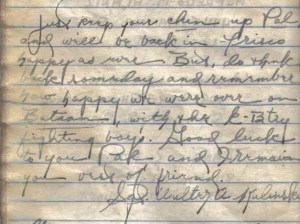 Just keep your chin up Pal
and will be back in Frisco
happy as ever But, do think
back someday and remember
how happy we were over on
Bataan, with the E-Btry
fighting boys. Good luck
to you Pal and I remain
your best of friend.
Sgt. Walter A